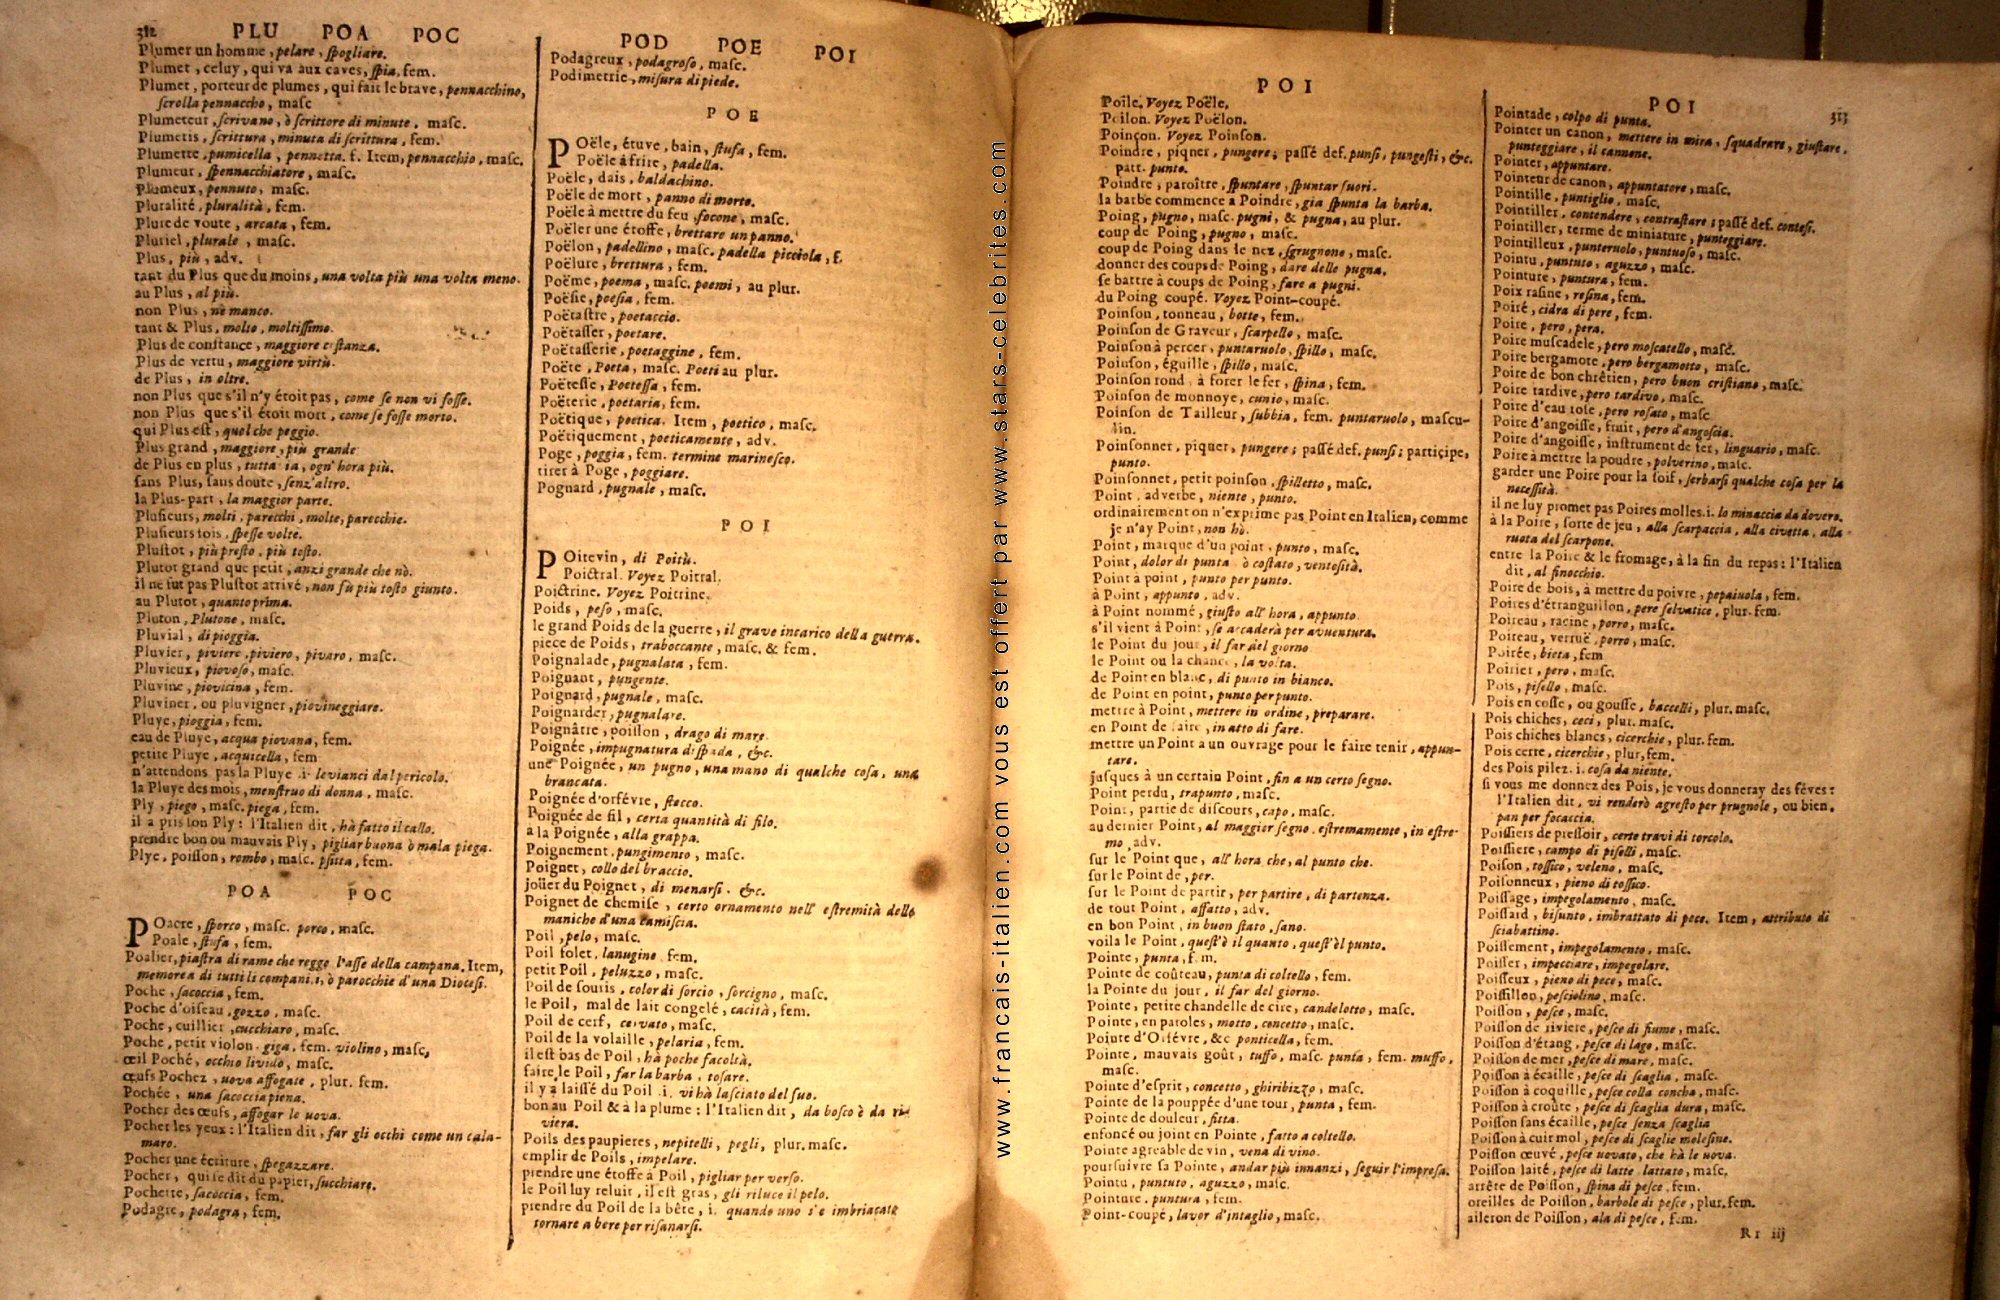 312 PLU POA POC
Plumer un homme, pelare, ſpogliare.
Plumet, celuy, qui va aux caves, ſpia, fem.
Plumet, porteur de plumes, qui fait le brave, pennacchino,
ſcrolla pennaccho, maſc
Plumeteur, ſcrivano, ò ſcrittore di minute, maſc.
Plumetis, ſcrittura, minuta di ſcrittura, fem.
Plumette, pumicella, pennetta. f. Item, pennachio, maſc.
Plumeur, ſpennacchiatore, maſc.
Plumeux, pennuto, maſc.
Pluralité, pluralità, fem.
Plure de voute, arcata, fem.
Pluriel, plurale, maſc.
Plus, più, adv.
tant du Plus que du moins, una volta più una volta meno.
au Plus, al più.
non Plus, nè manco.
tant & Plus, molto, moltiſſimo.
Plus de conſtance, maggiore coſtanza.
Plus de vertu, maggiore virtù.
de Plus, in oltre.
non Plus que s'il n'y étoit pas, come ſe non vi foſſe.
non Plus que s'il étoit mort, come ſe foſſe morto.
qui Plus eſt, quel che peggio.
Plus grand, maggiore, più grande
de Plus en plus, tutta via, ogn' hora più.
ſans Plus, ſans doute, ſenz'altro.
la Plus-part, la maggior parte.
Pluſieurs, molti, parecchi, molte, parecchie.
Pluſieurs fois, ſpeſſe volte.
Pluſtot, più preſto, più toſto.
Plutot grand que petit, anzi grande che nò.
il ne fut pas Pluſtot arrivé, non fù più toſto giunto.
au Plutot, quanto prima.
Pluton, Plutone, maſc.
Pluvial, di pioggia.
Pluvier, piviere, piviero, pivaro, maſc.
Pluvieux, piovoſo, maſc.
Pluvine, piovicina, fem.
Pluviner, ou pluvigner, piovineggiare.
Pluye, pioggia, fem.
eau de Pluye, acqua piovana, fem.
petite Pluye, acquicella, fem
n'attendons pas la Pluye .i. levianci dal pericolo.
la Pluye des mois, menſtruo di donna, maſc.
Ply, piego, maſc. piega, fem.
il a pris ſon Ply: l'Italien dit, hà fatto il callo.
prendre bon ou mauvais Ply, pigliar buona ò mala piega.
Plye, poiſſon, rombo, maſc. pſitta, fem.
POA POC
POacre, ſporco, maſc. porco, maſc.
Poale, ſtufa, fem.
Poalier, piaſtra di rame che regge l'aſſe della campana. Item,
memorea di tutti li compani. i, ò parocchie d'una Dioceſi.
Poche, ſacoccia, fem.
Poche d'oiſeau, gozzo, maſc.
Poche, cuillier, cucchiaro, maſc.
Poche, petit violon, giga, fem. violino, maſc,
œil Poché, occhio livido, maſc.
œufs Pochez, uova affogate, plur. fem.
Pochée, una ſacoccia piena.
Pocher des œufs, affogar le uova.
Pocher les yeux: l'Italien dit, far gli occhi come un cala-
maro.
Pocher une écriture, ſpegazzare.
Pocher, qui ſe dit du papier, ſucchiare.
Pochette, ſacoccia, fem.
Podagre, podagra, fem.
POD POE POI
Podagreux, podagroſo, maſc.
Podimetrie, miſura di piede.
POE
POële, étuve, bain, ſtufa, fem.
Poële à frire, padella.
Poële, dais, baldachino.
Poële de mort, panno di morto.
Poële à mettre du feu, focone, maſc.
Poëler une étoffe, brettare un panno.
Poëlon, padellino, maſc. padella picciola, f.
Poëlure, brettura, fem.
Poëme, poema, maſc. poemi, au plur.
Poëſie, poeſia, fem.
Poëtaſtre, poetaccio.
Poëtaſſer, poetare.
Poëtaſſerie, poetaggine, fem.
Poëte, Poeta, maſc. Poeti au plur.
Poëteſſe, Poeteſſa, fem.
Poëterie, poetaria, fem.
Poëtique, poetica. Item, poetico, maſc.
Poëtiquement, poeticamente, adv.
Poge, poggia, fem. termine marineſco.
tirer à Poge, poggiare.
Pognard, pugnale, maſc.
POI
POitevin, di Poitù.
Poictral. Voyez Poitral.
Poictrine. Voyez Poitrine.
Poids, peſo, maſc.
le grand Poids de la guerre, il grave incarico della guerra.
piece de Poids, traboccante, maſc. & fem.
Poignalade, pugnalata, fem.
Poignant, pungente.
Poignard, pugnale, maſc.
Poignarder, pugnalare.
Poignâtre, poiſſon, drago di mare.
Poignée, impugnatura di ſpada, &c.
une Poignée, un pugno, una mano di qualche coſa, una
brancata.
Poignée d'orfévre, ſtecco.
Poignée de fil, certa quantità di filo.
à la Poignée, alla grappa.
Poignement, pungimento, maſc.
Poignet, collo del braccio.
joüer du Poignet, di menarſi. &c.
Poignet de chemiſe, certo ornamento nell' eſtremità delle
maniche d'una camiſcia.
Poil, pelo, maſc.
Poil folet, lanugine, fem.
petit Poil, peluzzo, maſc.
Poil de ſouris, color di ſorcio, ſorcigno, maſc.
le Poil, mal de lait congelé, cacità, fem.
Poil de cerf, cervato, maſc.
Poil de la volaille, pelaria, fem.
il eſt bas de Poil, hà poche facoltà.
faire le Poil, far la barba, toſare.
il y a laiſſé du Poil .i. vi hà laſciato del ſuo.
bon au Poil & à la plume: l'Italien dit, da boſco è da ri-
viera.
Poils des paupieres, nepitelli, pegli, plur. maſc.
emplir de Poils, impelare.
prendre une étoffe à Poil, pigliar per verſo.
le Poil luy reluit, il eſt gras, gli riluce il pelo.
prendre du Poil de la bête, i. quando uno s'è imbriacato
tornare a bere per riſanarſi.
www.francais-italien.com vous est offert par www.stars-celebrites.com
POI
Poile. Voyez Poële.
Poilon. Voyez Poëlon.
Poinçon. Voyez Poinſon.
Poindre, piqner, pungere; paſſé def. punſi, pungeſti, &c.
part. punto.
Poindre, paroître, ſpuntare, ſpuntar fuori.
la barbe commence à Poindre, gia ſpunta la barba.
Poing, pugno, maſc. pugni, & pugna, au plur.
coup de Poing, pugno, maſc.
coup de Poing dans le nez, ſgrugnone, maſc.
donner des coups de Poing, dare delle pugna.
ſe battre à coups de Poing, fare a pugni.
du Poing coupé. Voyez Point-coupé.
Poinſon, tonneau, botte, fem.
Poinſon de Graveur, ſcarpello, maſc.
Poinſon à percer, puntaruolo, ſpillo, maſc.
Poinſon, éguille, ſpillo, maſc.
Poinſon rond, à forer le fer, ſpina, fem.
Poinſon de monnoye, cunio, maſc.
Poinſon de Tailleur, ſubbia, fem. puntaruolo, maſcu-
lin.
Poinſonner, piquer, pungere; paſſé def. punſi; participe,
punto.
Poinſonnet, petit poinſon, ſpilletto, maſc.
Point, adverbe, niente, punto.
ordinairement on n'exprime pas Point en Italien, comme
je n'ay Point, non hò.
Point, marque d'un point, punto, maſc.
Point, dolor di punta ò coſtato, ventoſità.
Point à point, punto per punto.
à Point, appunto, adv.
à Point nommé, giuſto all' hora, appunto
s'il vient à Point, ſe accaderà per avventura.
le Point du jour, il far del giorno
le Point ou la chance, la volta.
de Point en blanc, di punto in bianco.
de Point en point, punto per punto.
mettre à Point, mettere in ordine, preparare.
en Point de faire, in atto di fare.
mettre un Point a un ouvrage pour le faire tenir, appun-
tare.
juſques à un certain Point, fin a un certo ſegno.
Point perdu, trapunto, maſc.
Point, partie de diſcours, capo, maſc.
au dernier Point, al maggier ſegno, eſtremamente, in eſtre-
mo, adv.
ſur le Point que, all' hora che, al punto che.
ſur le Point de, per.
ſur le Point de partir, per partire, di partenza.
de tout Point, affatto, adv.
en bon Point, in buon ſtato, ſano.
voila le Point, queſt'è il quanto, queſt'èl punto.
Pointe, punta, fem.
Pointe de coûteau, punta di coltello, fem.
la Pointe du jour, il far del giorno.
Pointe, petite chandelle de cire, candelotto, maſc.
Pointe, en paroles, motto, concetto, maſc.
Pointe d'Orfévre, &c ponticella, fem.
Pointe, mauvais goût, tuffo, maſc. punta, fem. muffo,
maſc.
Pointe d'eſprit, concetto, ghiribizzo, maſc.
Pointe de la pouppée d'une tour, punta, fem.
Pointe de douleur, fitta.
enfoncé ou joint en Pointe, fatto a coltello.
Pointe agreable de vin, vena di vino.
pourſuivre ſa Pointe, andar più innanzi, ſeguir l'impreſa.
Pointu, puntuto, aguzzo, maſc.
Pointure, puntura, fem.
Point-coupé, lavor d'intaglio, maſc.
POI 313
Pointade, colpo di punta.
Pointer un canon, mettere in mira, ſquadrare, giuſtare,
punteggiare, il cannone.
Pointer, appuntare.
Pointeur de canon, appuntatore, maſc.
Pointille, puntiglio, maſc.
Pointiller, contendere, contraſtare; paſſé def. conteſi.
Pointiller, terme de miniature, punteggiare.
Pointilleux, punteruolo, puntuoſo, maſc.
Pointu, puntuto, aguzzo, maſc.
Pointure, puntura, fem.
Poix raſine, reſina, fem.
Poiré, cidra di pere, fem.
Poire, pero, pera.
Poire muſcadele, pero moſcatello, maſc.
Poire bergamote, pero bergamotto, maſc.
Poire de bon chrêtien, pero buon criſtiano, maſc.
Poire tardive, pero tardivo, maſc.
Poire d'eau roſe, pero roſato, maſc
Poire d'angoiſſe, fruit, pero d'angoſcia.
Poire d'angoiſſe, inſtrument de fer, linguario, maſc.
Poire à mettre la poudre, polverino, maſc.
garder une Poire pour la ſoif, ſerbarſi qualche coſa per la
neceſſità.
il ne luy promet pas Poires molles. i. lo minaccia da dovero.
à la Poire, ſorte de jeu, alla ſcarpaccia, alla civetta, alla
ruota del ſcarpone.
entre la Poire & le fromage, à la fin du repas: l'Italien
dit, al finocchio.
Poire de bois, à mettre du poivre, pepaiuola, fem.
Poires d'étranguillon, pere ſelvatice, plur. fem.
Poireau, racine, porro, maſc.
Poireau, verruë, porro, maſc.
Poirée, bieta, fem
Poirier, pero, maſc.
Pois, piſello, maſc.
Pois en coſſe, ou gouſſe, baccelli, plur. maſc.
Pois chiches, ceci, plur. maſc.
Pois chiches blancs, cicerchie, plur. fem.
Pois cerre, cicerchie, plur, fem.
des Pois pilez. i. coſa da niente.
ſi vous me donnez des Pois, je vous donneray des féves:
l'Italien dit, vi renderò agreſto per prugnole, ou bien,
pan per focaccia.
Poiſſiers de preſſoir, certe travi di torcolo.
Poiſſiere, campo di piſelli, maſc.
Poiſon, toſſico, veleno, maſc.
Poiſonneux, pieno di toſſico.
Poiſſage, impegolamento, maſc.
Poiſſard, biſunto, imbrattato di pece. Item, attributo di
ſciabattino.
Poiſſement, impegolamento, maſc.
Poiſſer, impecciare, impegolare.
Poiſſeux, pieno di pece, maſc.
Poiſſillon, peſciolino, maſc.
Poiſſon, peſce, maſc.
Poiſſon de riviere, peſce di fiume, maſc.
Poiſſon d'étang, peſce di lago, maſc.
Poiſſon de mer, peſce di mare, maſc.
Poiſſon à écaille, peſce di ſcaglia, maſc.
Poiſſon à coquille, peſce colla concha, maſc.
Poiſſon à croûte, peſce di ſcaglia dura, maſc.
Poiſſon ſans écaille, peſce ſenza ſcaglia
Poiſſon à cuir mol, peſce di ſcaglie moleſine.
Poiſſon œuvé, peſce uovato, che hà le uova.
Poiſſon laité, peſce di latte, lattato, maſc.
arrête de Poiſſon, ſpina di peſce, fem.
oreilles de Poiſſon, barbole di peſce, plur. fem.
aileron de Poiſſon, ala di peſce, fem.
Rr iij